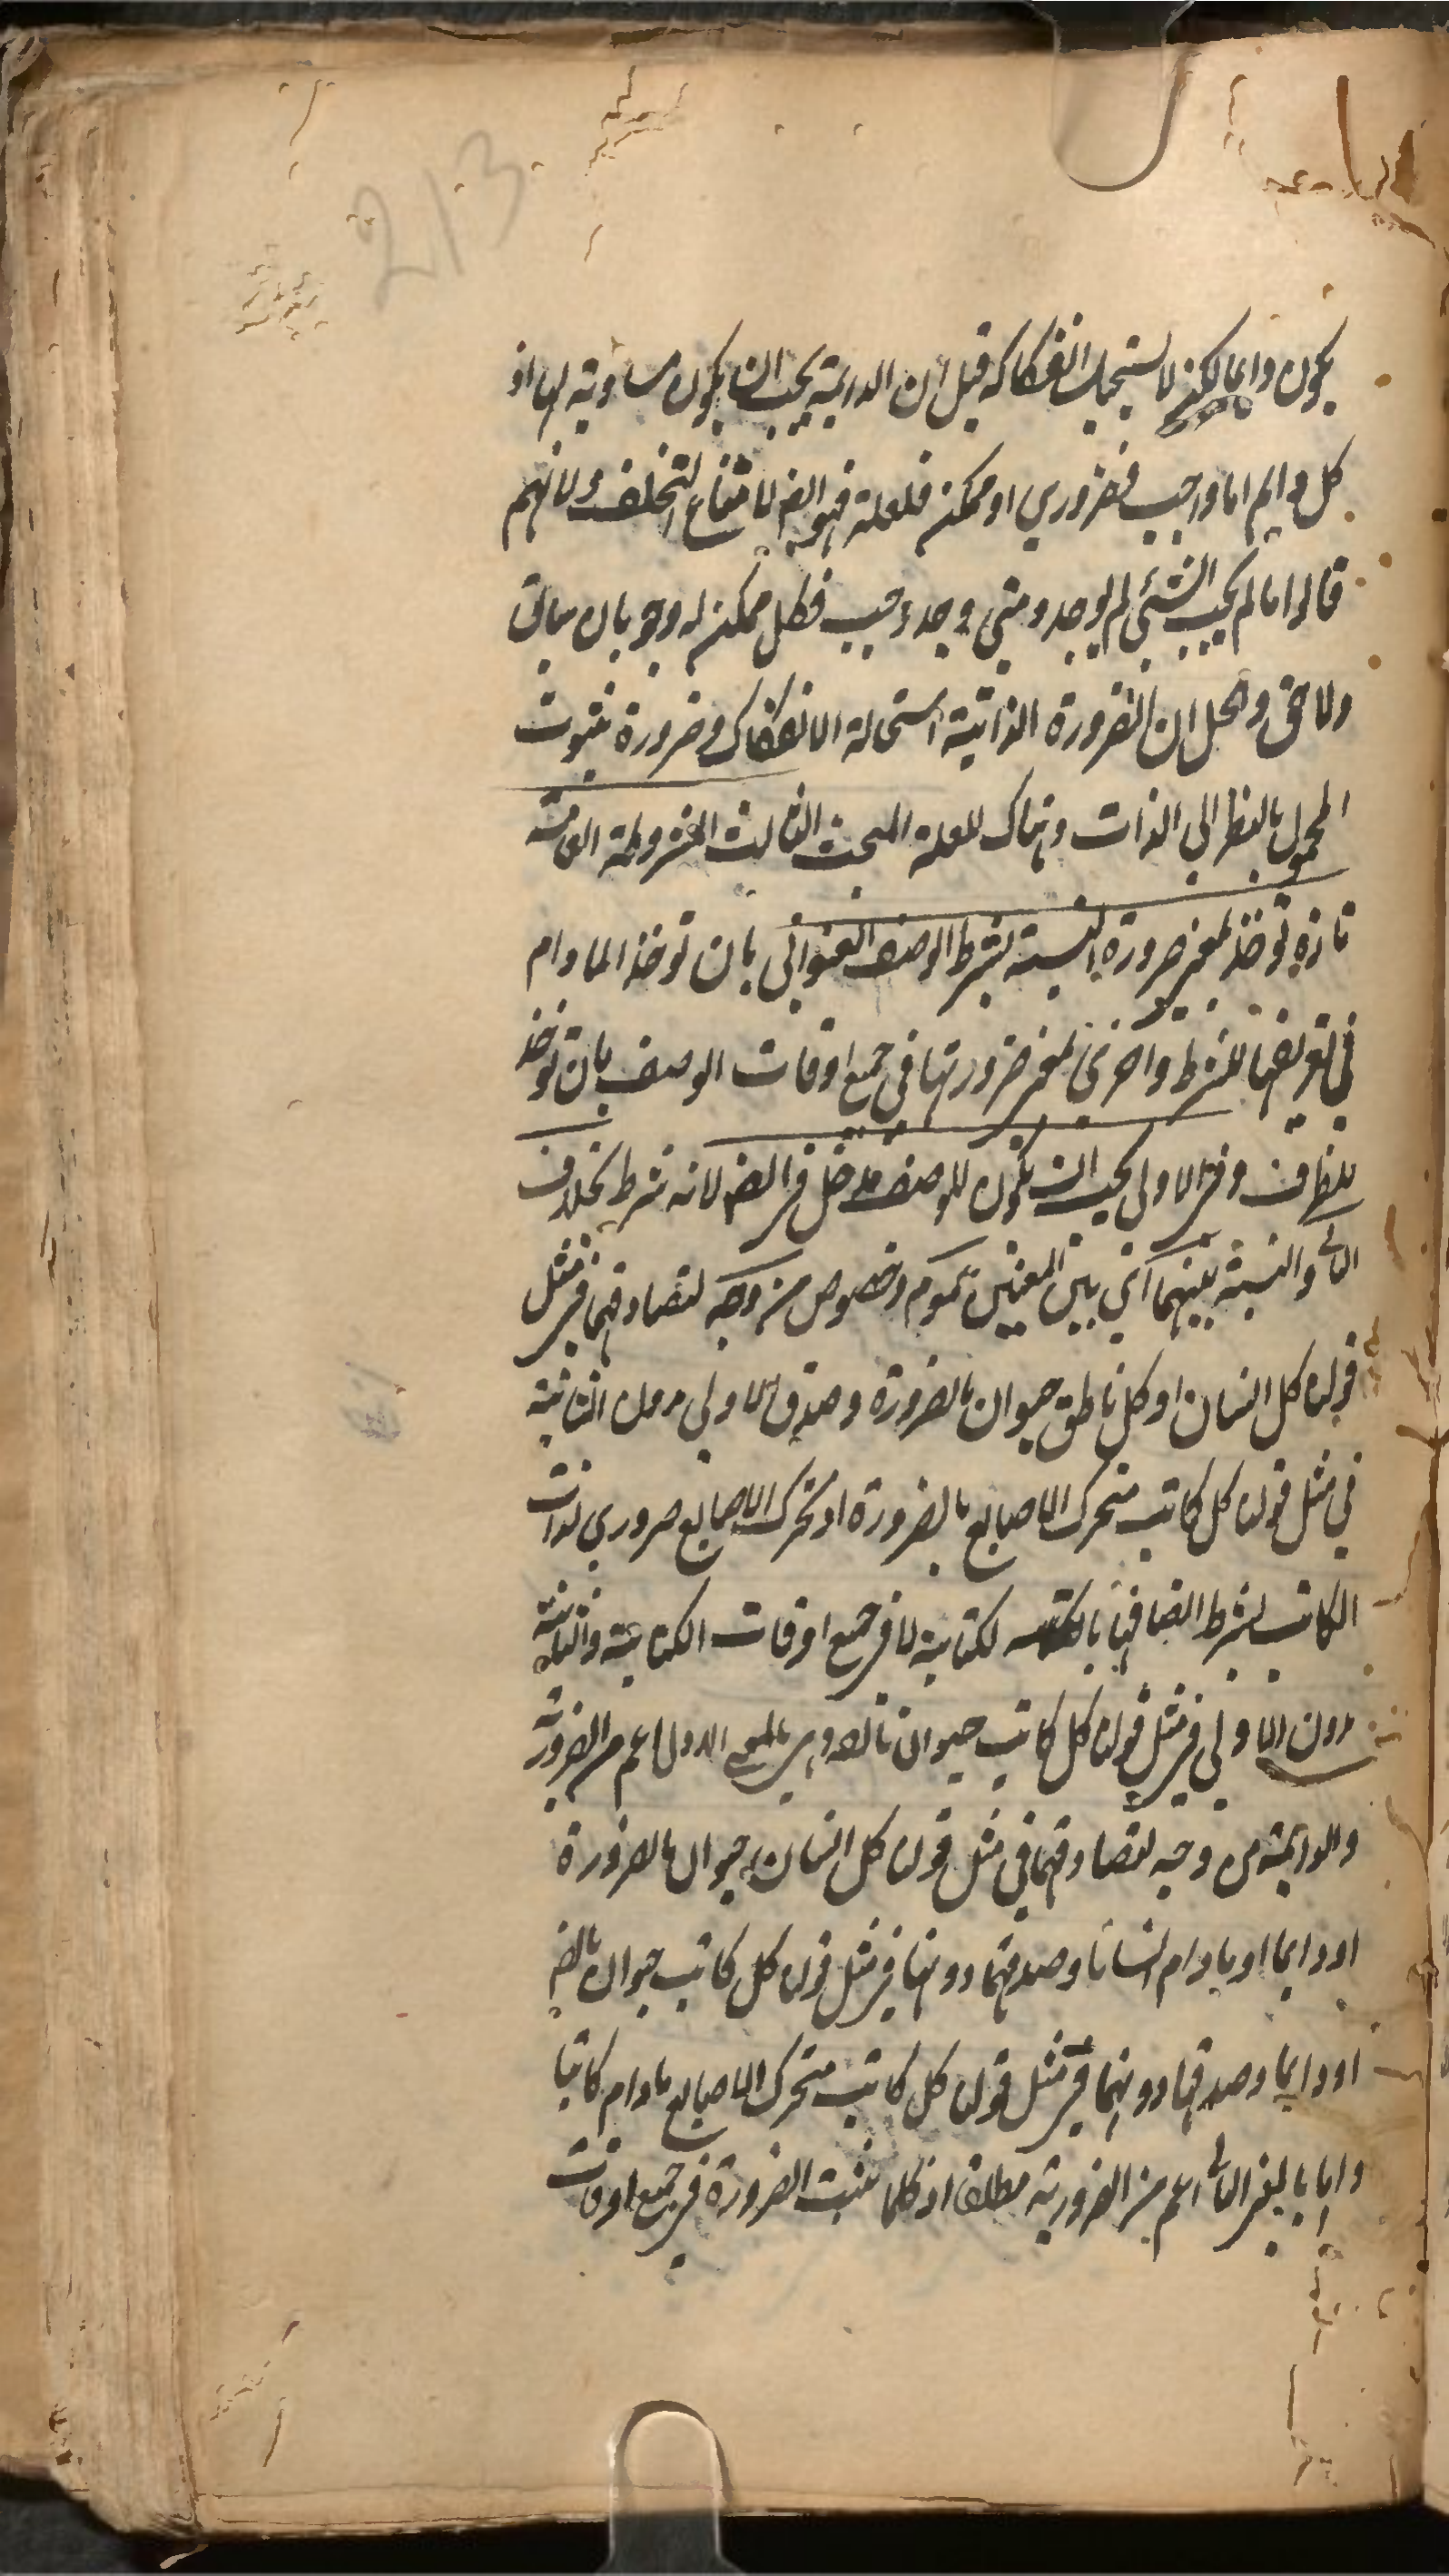 213
يكون دايما لكن لا يستحيل انفكاكه قيل ان الدايمة يجب ان يكون مساوية لها اذ
كل دايم اما واجب فضروري او ممكن فلعلة فهو ايضا لامتناع التخلف ولانهم
قالوا ما لم يجب الشئ لم يوجد ومتى وجد وجب فكل ممكن له وجوبان سابق
ولاحق والحل ان الضرورة الذاتية استحالة الانفكاك وضرورة ثبوت
المحمول بالنظر الى الذات وهناك للعلة المبحث الثالث المشروطة العامة
تارة توخذ لمعنى ضرورة النسبة بشرط الوصف العنواني بان توخذ المادام
في تعريفها للشرط واخرى لمعنى ضرورتها في جميع اوقات الوصف بان توخذ
للظرف وفي الاولى يجب ان يكون للوصف مدخل في الضر لانه شرط بخلاف
الثا والنسبة بينهما اى بين المعنيين عموم وخصوص من وجه لتصادقهما في مثل
قولنا كل انسان او كل ناطق حيوان بالضرورة وصدق الاولى دون الثانية
في مثل قولنا كل كاتب متحرك الاصابع بالضرورة اذ تحرك الاصابع ضروري لذات
الكاتب بشرط اتصافها لكتابة لا في جميع اوقات الكتابة والثانية
دون الاولى في مثل قولنا كل كاتب حيوان الاول اعم من الضرورية
والدايمة من وجه لتصادقهما في مثل قولنا كل انسان حيوان بالضرورة
او دايما او مادام انسانا وصدقهما دونها في مثل قولنا كل كاتب حيوان بالضر
او دايما وصدقها دونهما في مثل قولنا كل كاتب متحرك الاصابع مادام كاتبا
واما بالمعنى الثا اعم من الضرورية مطلقا اذ كلما ثبت الضرورة في جميع اوقات